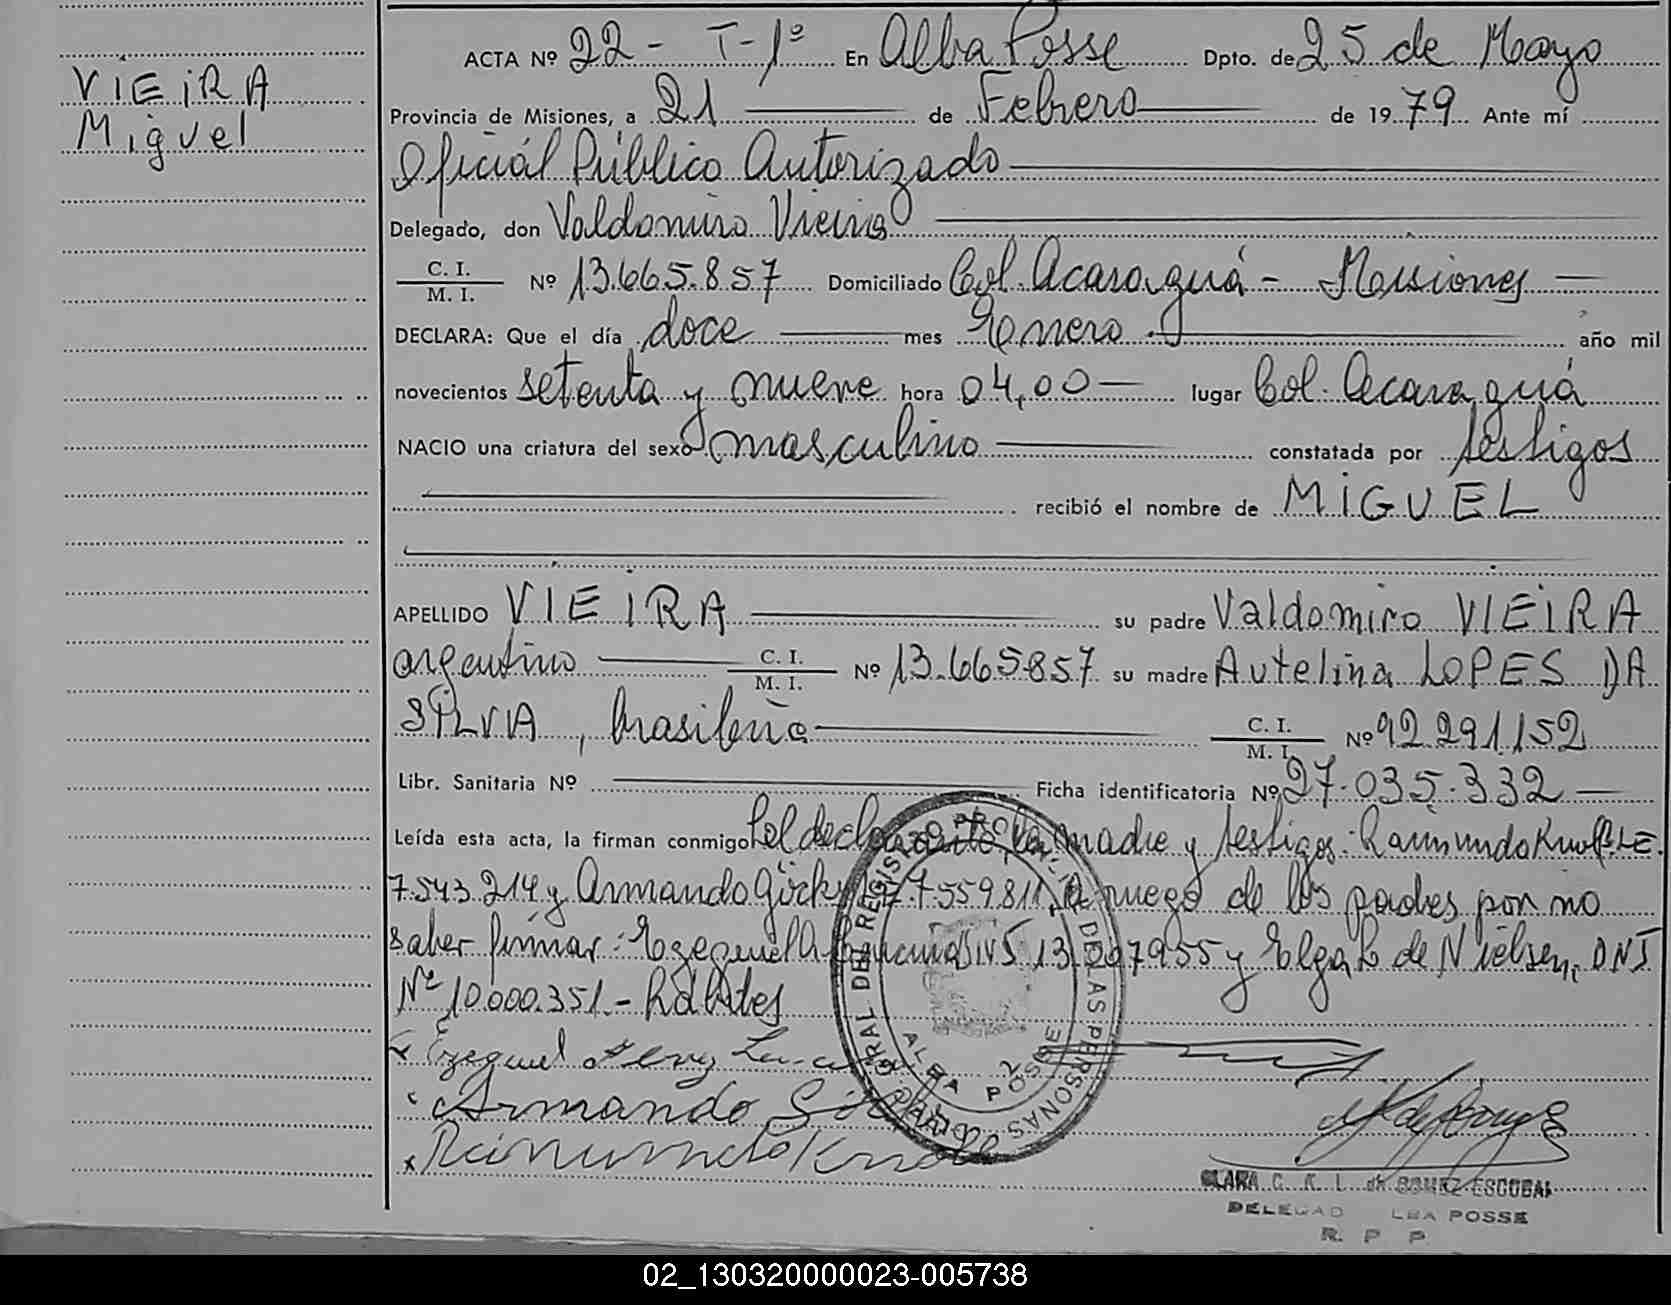 VIEIRA
Miguel
ACTA Nº 22 - T-1º En Alba Posse Dpto. de 25 de Mayo
Provincia de Misiones, a 21 de Febrero de 1979 Ante mí
Oficial Público Autorizado
Delegado, don Valdomiro Vieira
C. I.
M. I. Nº 13.665.857 Domiciliado Col. Acaraguá - Misiones
DECLARA: Que el día doce mes Enero año mil
novecientos setenta y nueve hora 04,00 lugar Col. Acaraguá
NACIO una criatura del sexo masculino constatada por testigos
recibió el nombre de MIGUEL
APELLIDO VIEIRA su padre Valdomiro VIEIRA
argentino C. I. M. I. Nº 13.665857 su madre Autelina LOPES DA
SILVA, brasileña C. I. M. I. Nº 92.291.152
Libr. Sanitaria Nº Ficha identificatoria Nº 27.035.332
Leída esta acta, la firman conmigo el declarante, la madre y testigos: Raimundo LE.
7.543.214 y Armando 7.559811, a ruego de los padres por no
saber firmar: 13.207955 y Elga L de Nielsen, DNI
Nº 10.000.351.-
Ezequiel
Armando
Raimundo
GRAL DEL REGISTRO PROV. DE LAS PERSONAS
ALBA POSSE
CLARA C. K. L. de GOMEZ ESCOBAR
DELEGAD LBA POSSE
R. P P
02_130320000023-005738